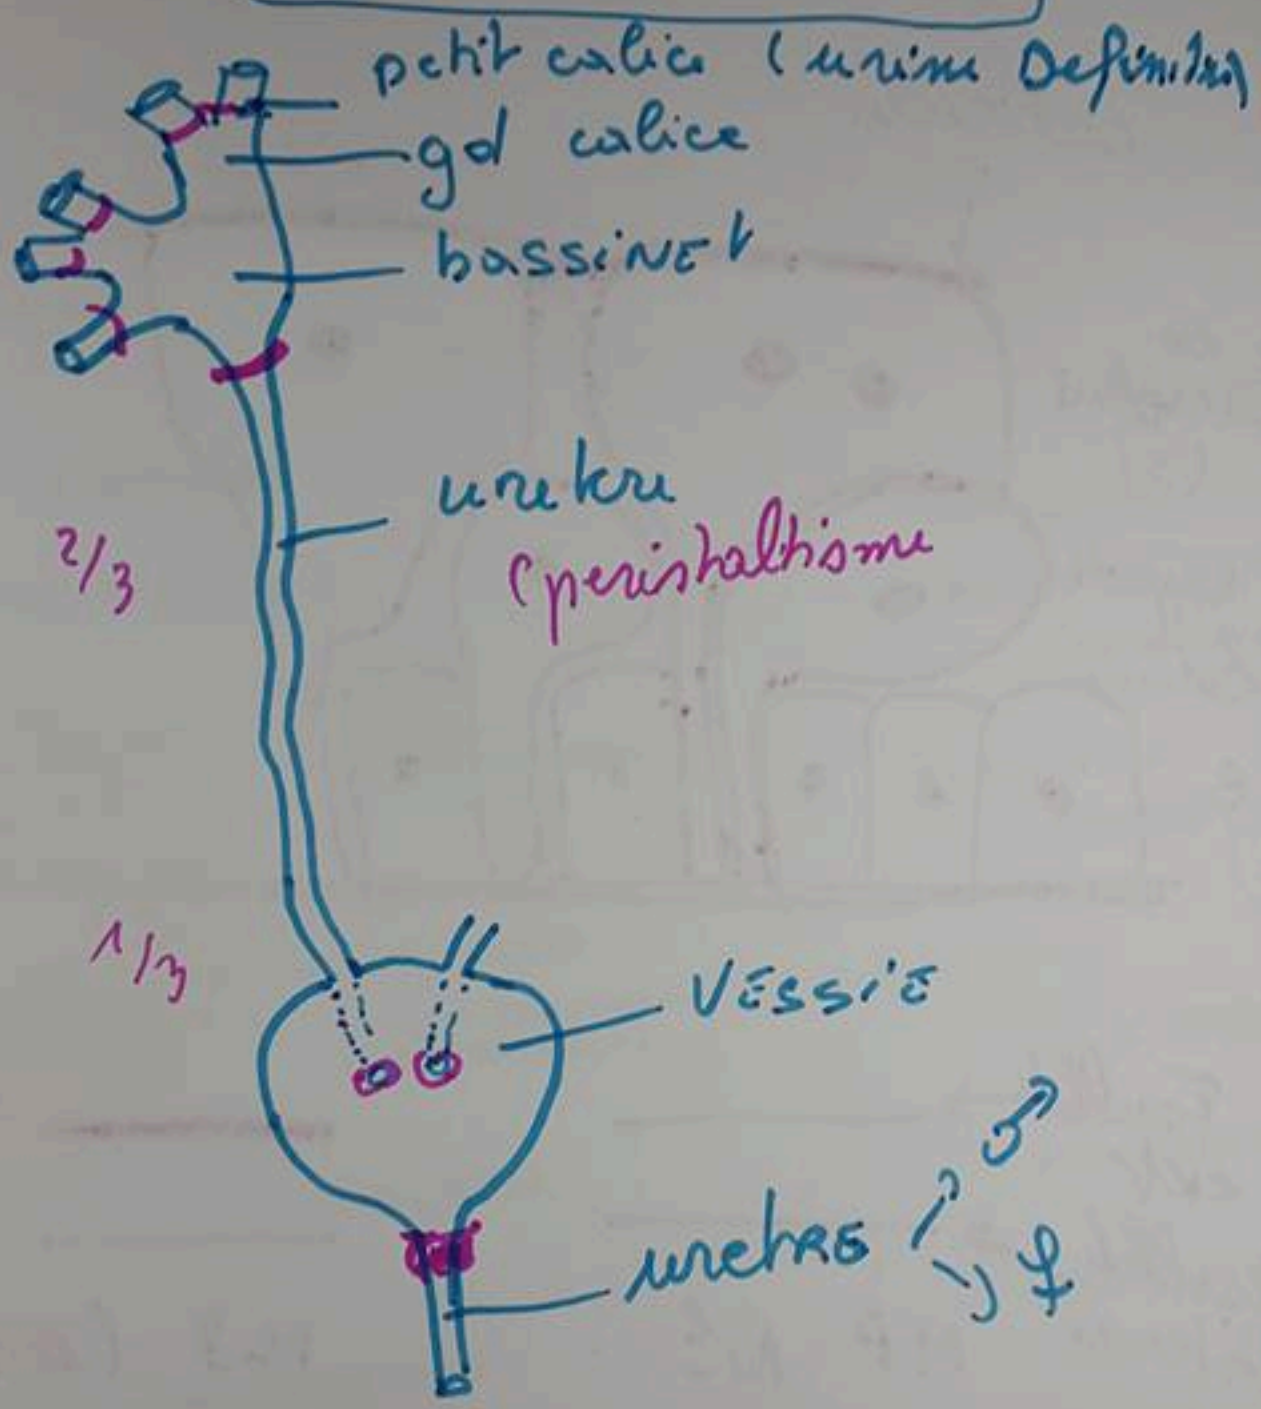 petit calice (urine Definitive)
gd calice
bassiNEt
uretere
(peristaltisme
2/3
1/3
VESSiE
uretRE ♂
♀